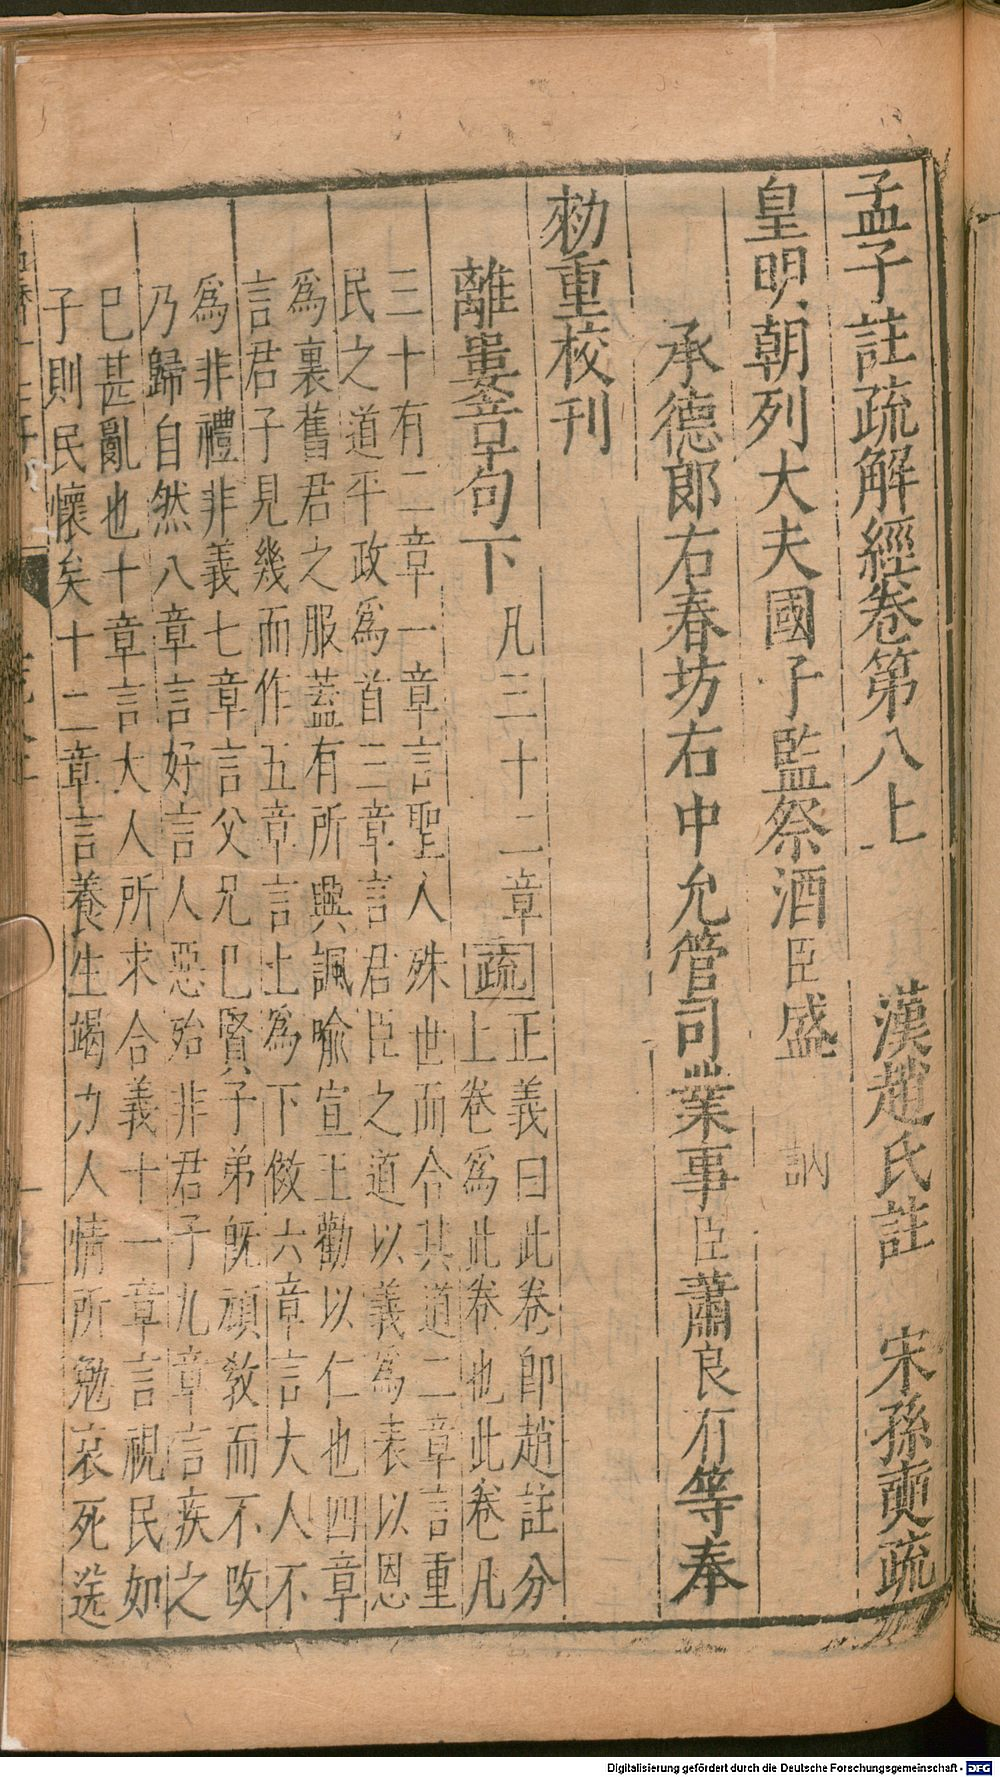 孟子註疏解經卷第八上
漢趙氏註　宋孫奭疏
皇明朝列大夫國子監祭酒臣盛　訥
承德郎右春坊右中允管司業事臣蕭良有等奉
勑重校刊
離婁章句下
凡三十二章
疏
正義曰此卷卽趙註分
上卷爲此卷也此卷凡
三十有二章一章言聖人殊世而合其道二章言重
民之道平政爲首三章言君臣之道以義爲表以恩
爲裏舊君之服蓋有所興諷喻宣王勸以仁也四章
言君子見幾而作五章言上爲下傚六章言大人不
爲非禮非義七章言父兄巳賢子弟旣頑敎而不改
乃歸自然八章言好言人惡殆非君子九章言疾之
巳甚亂也十章言大人所求合義十一章言視民如
子則民懷矣十二章言養生竭力人情所勉哀死送
Digitalisierung gefördert durch die Deutsche Forschungsgemeinschaft - DFG